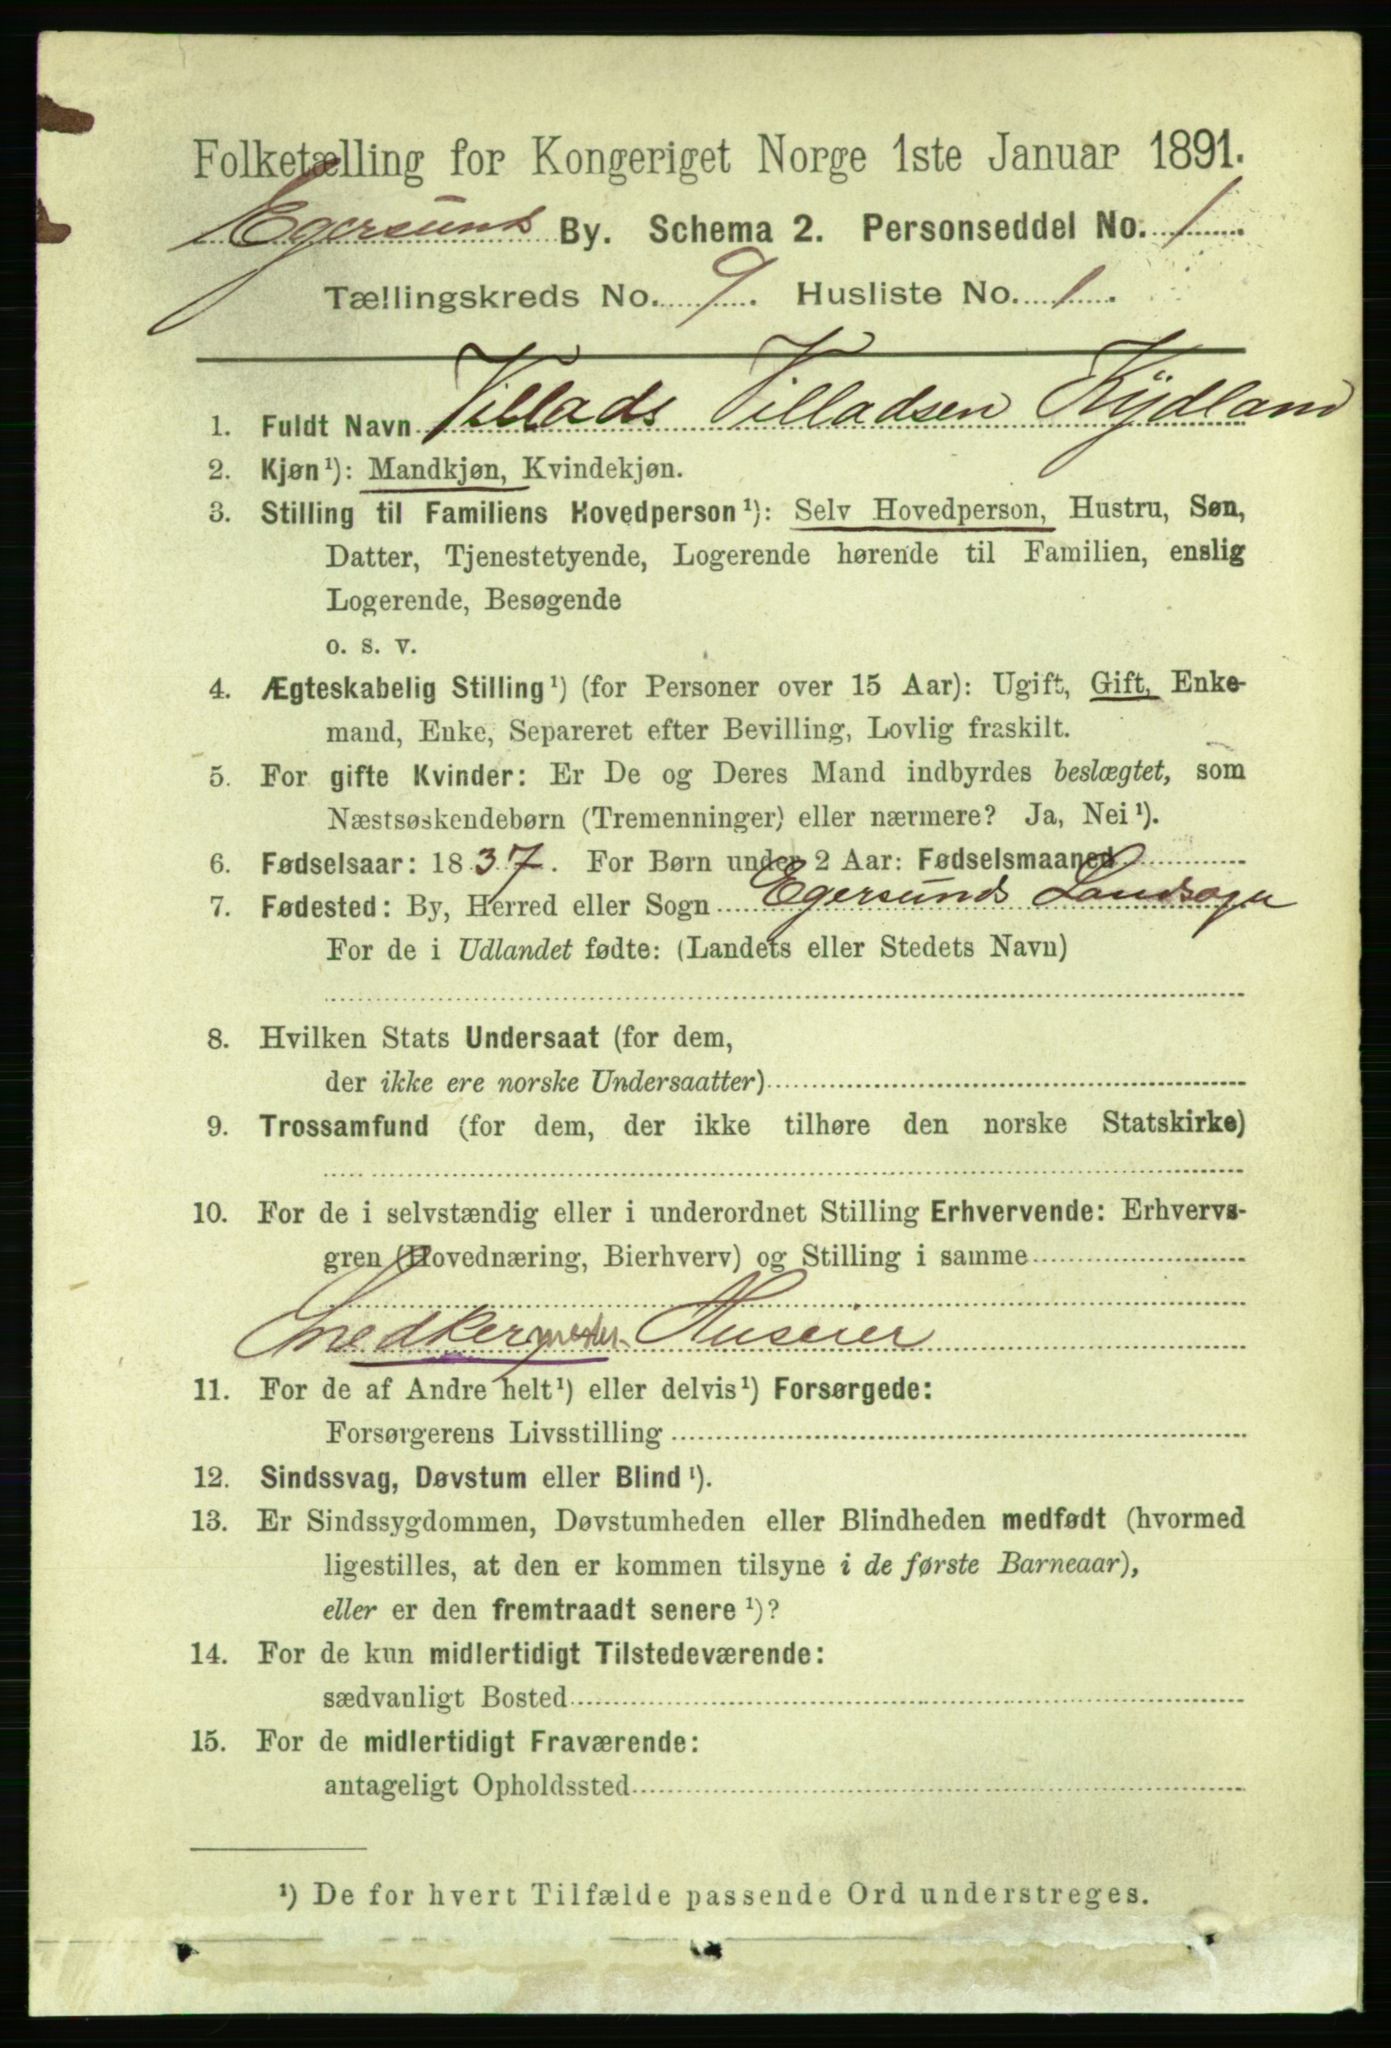 Folketælling for Kongeriget Norge 1ste Januar 1891.
Egersunds By. Schema 2. Personseddel No. 1.
Tællingskreds No. 9. Husliste No. 1.
1. Fuldt Navn Villads Villadsen Kÿdland
2. Kjøn¹): Mandkjøn, Kvindekjøn.
3. Stilling til Familiens Hovedperson¹): Selv Hovedperson, Hustru, Søn,
Datter, Tjenestetyende, Logerende hørende til Familien, enslig
Logerende, Besøgende
o. s. v.
4. Ægteskabelig Stilling¹) (for Personer over 15 Aar): Ugift, Gift, Enke-
mand, Enke, Separeret efter Bevilling, Lovlig fraskilt.
5. For gifte Kvinder: Er De og Deres Mand indbyrdes beslægtet, som
Næstsøskendebørn (Tremenninger) eller nærmere? Ja, Nei¹).
6. Fødselsaar: 1837. For Børn under 2 Aar: Fødselsmaaned
7. Fødested: By, Herred eller Sogn Egersunds Landsogn
For de i Udlandet fødte: (Landets eller Stedets Navn)
8. Hvilken Stats Undersaat (for dem,
der ikke ere norske Undersaatter)
9. Trossamfund (for dem, der ikke tilhøre den norske Statskirke)
10. For de i selvstændig eller i underordnet Stilling Erhvervende: Erhvervs-
gren (Hovednæring, Bierhverv) og Stilling i samme
Snedkermester Huseier
11. For de af Andre helt¹) eller delvis¹) Forsørgede:
Forsørgerens Livsstilling
12. Sindssvag, Døvstum eller Blind¹).
13. Er Sindssygdommen, Døvstumheden eller Blindheden medfødt (hvormed
ligestilles, at den er kommen tilsyne i de første Barneaar),
eller er den fremtraadt senere¹)?
14. For de kun midlertidigt Tilstedeværende:
sædvanligt Bosted
15. For de midlertidigt Fraværende:
antageligt Opholdssted
¹) De for hvert Tilfælde passende Ord understreges.